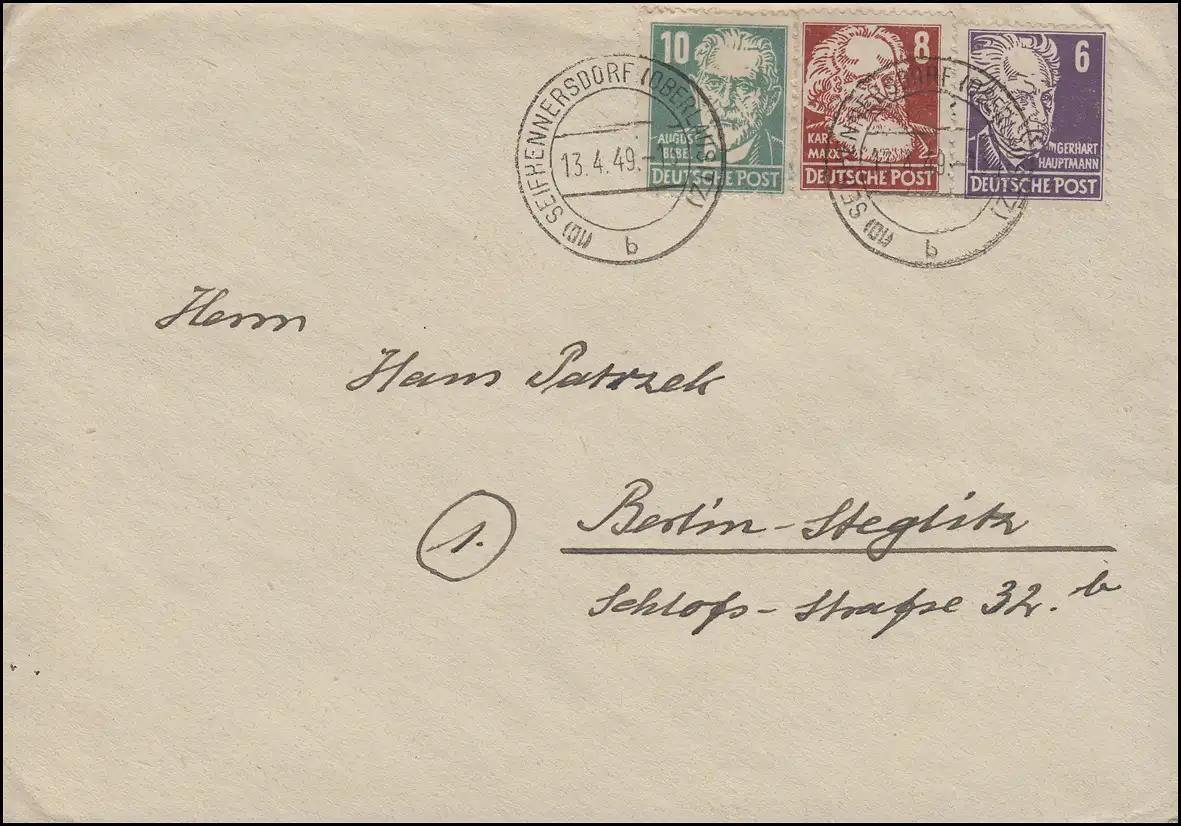 10
AUGUST
BEBEL
DEUTSCHE POST
8
KARL
MARX
DEUTSCHE POST
6
GERHART
HAUPTMANN
DEUTSCHE POST
(10) SEIFHENNERSDORF (OBERLAUSITZ)
13.4.49.-
b
(10) SEIFHENNERSDORF (OBERLAUSITZ)
13.4.49.-
b
Herrn
Hans Patrzek
1.
Berlin-Steglitz
Schloß-Straße 32.b